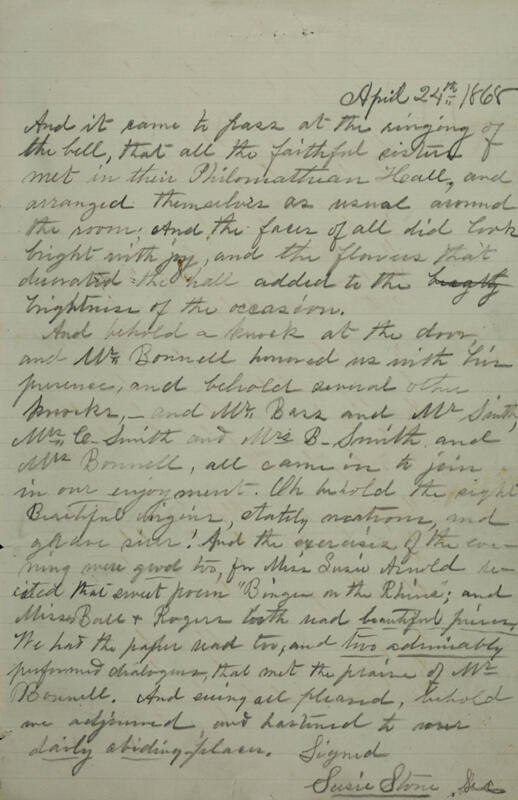 April 24th 1868
And it came to pass at the ringing of
the bell, that all the faithful sisters
met in their Philomathean Hall, and
arranged themselves as usual around
the room, And the faces of all did look
bright with joy, and the flowers that
decorated the hall added to the
brightness of the occasion.
And behold a knock at the door,
and Mr. Bonnell honored us with his
presence, and behold several other
knocks, - and Mr. Bass and Mr Smith,
Mrs. C- Smith and Mrs B- Smith and
Mrs Bonnell, all came in to join
in our enjoyment. Oh behold the sight
Beautiful virgins, stately matrons, and
grave sires! And the exercises of the eve-
ning were good too, for Miss Susie Arnold re-
cited that sweet poem "Bingen on the Rhine"; and
Misses Ball & Rogers both read beautiful pieces.
We had the paper read too, and two admirably
performed dialogues, that met the praise of Mr.
Bonnell. And seeing all pleased, behold
we adjourned and hastened to our
daily abiding-places. Signed
Susie Stone, Sec